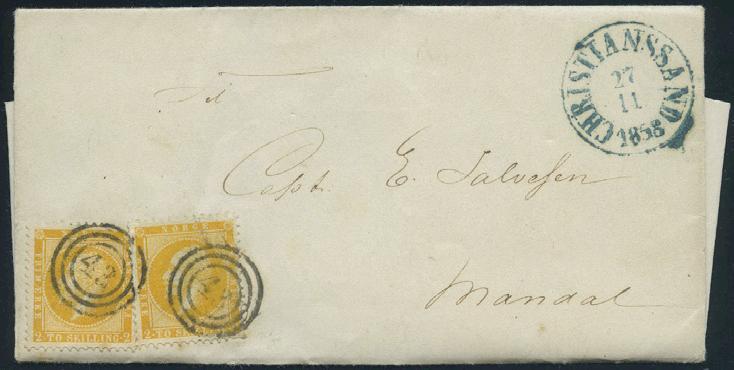 CHRISTIANSSAND
27
11
1858
Til
Capt. E. Salvesen
Mandal
FRIMÆRKE
2 TO SKILLING 2
42
NORGE
2 TO SKILLING 2
42